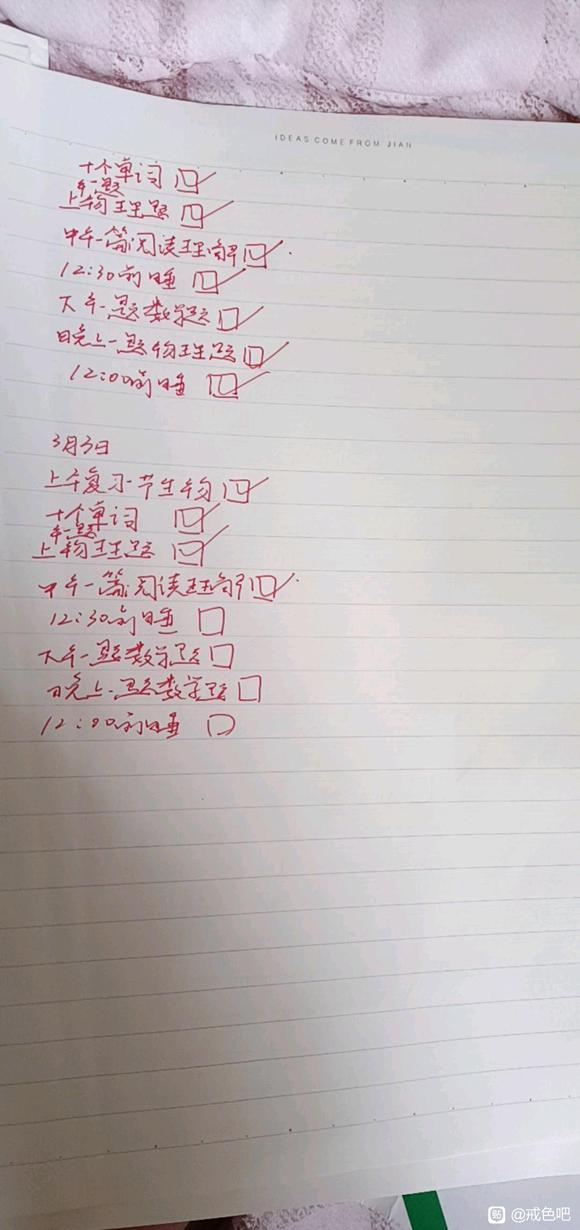 IDEAS COME FROM JIAN
十个单词
上午一题物理题
中午一篇阅读理解
12:30前睡
下午一题数学题
晚上一题物理题
12:00前睡
3月3日
上午复习一节生物
十个单词
上午一题物理题
中午一篇阅读理解
12:30前睡
下午一题数学题
晚上一题数学题
12:00前睡
贴 @戒色吧